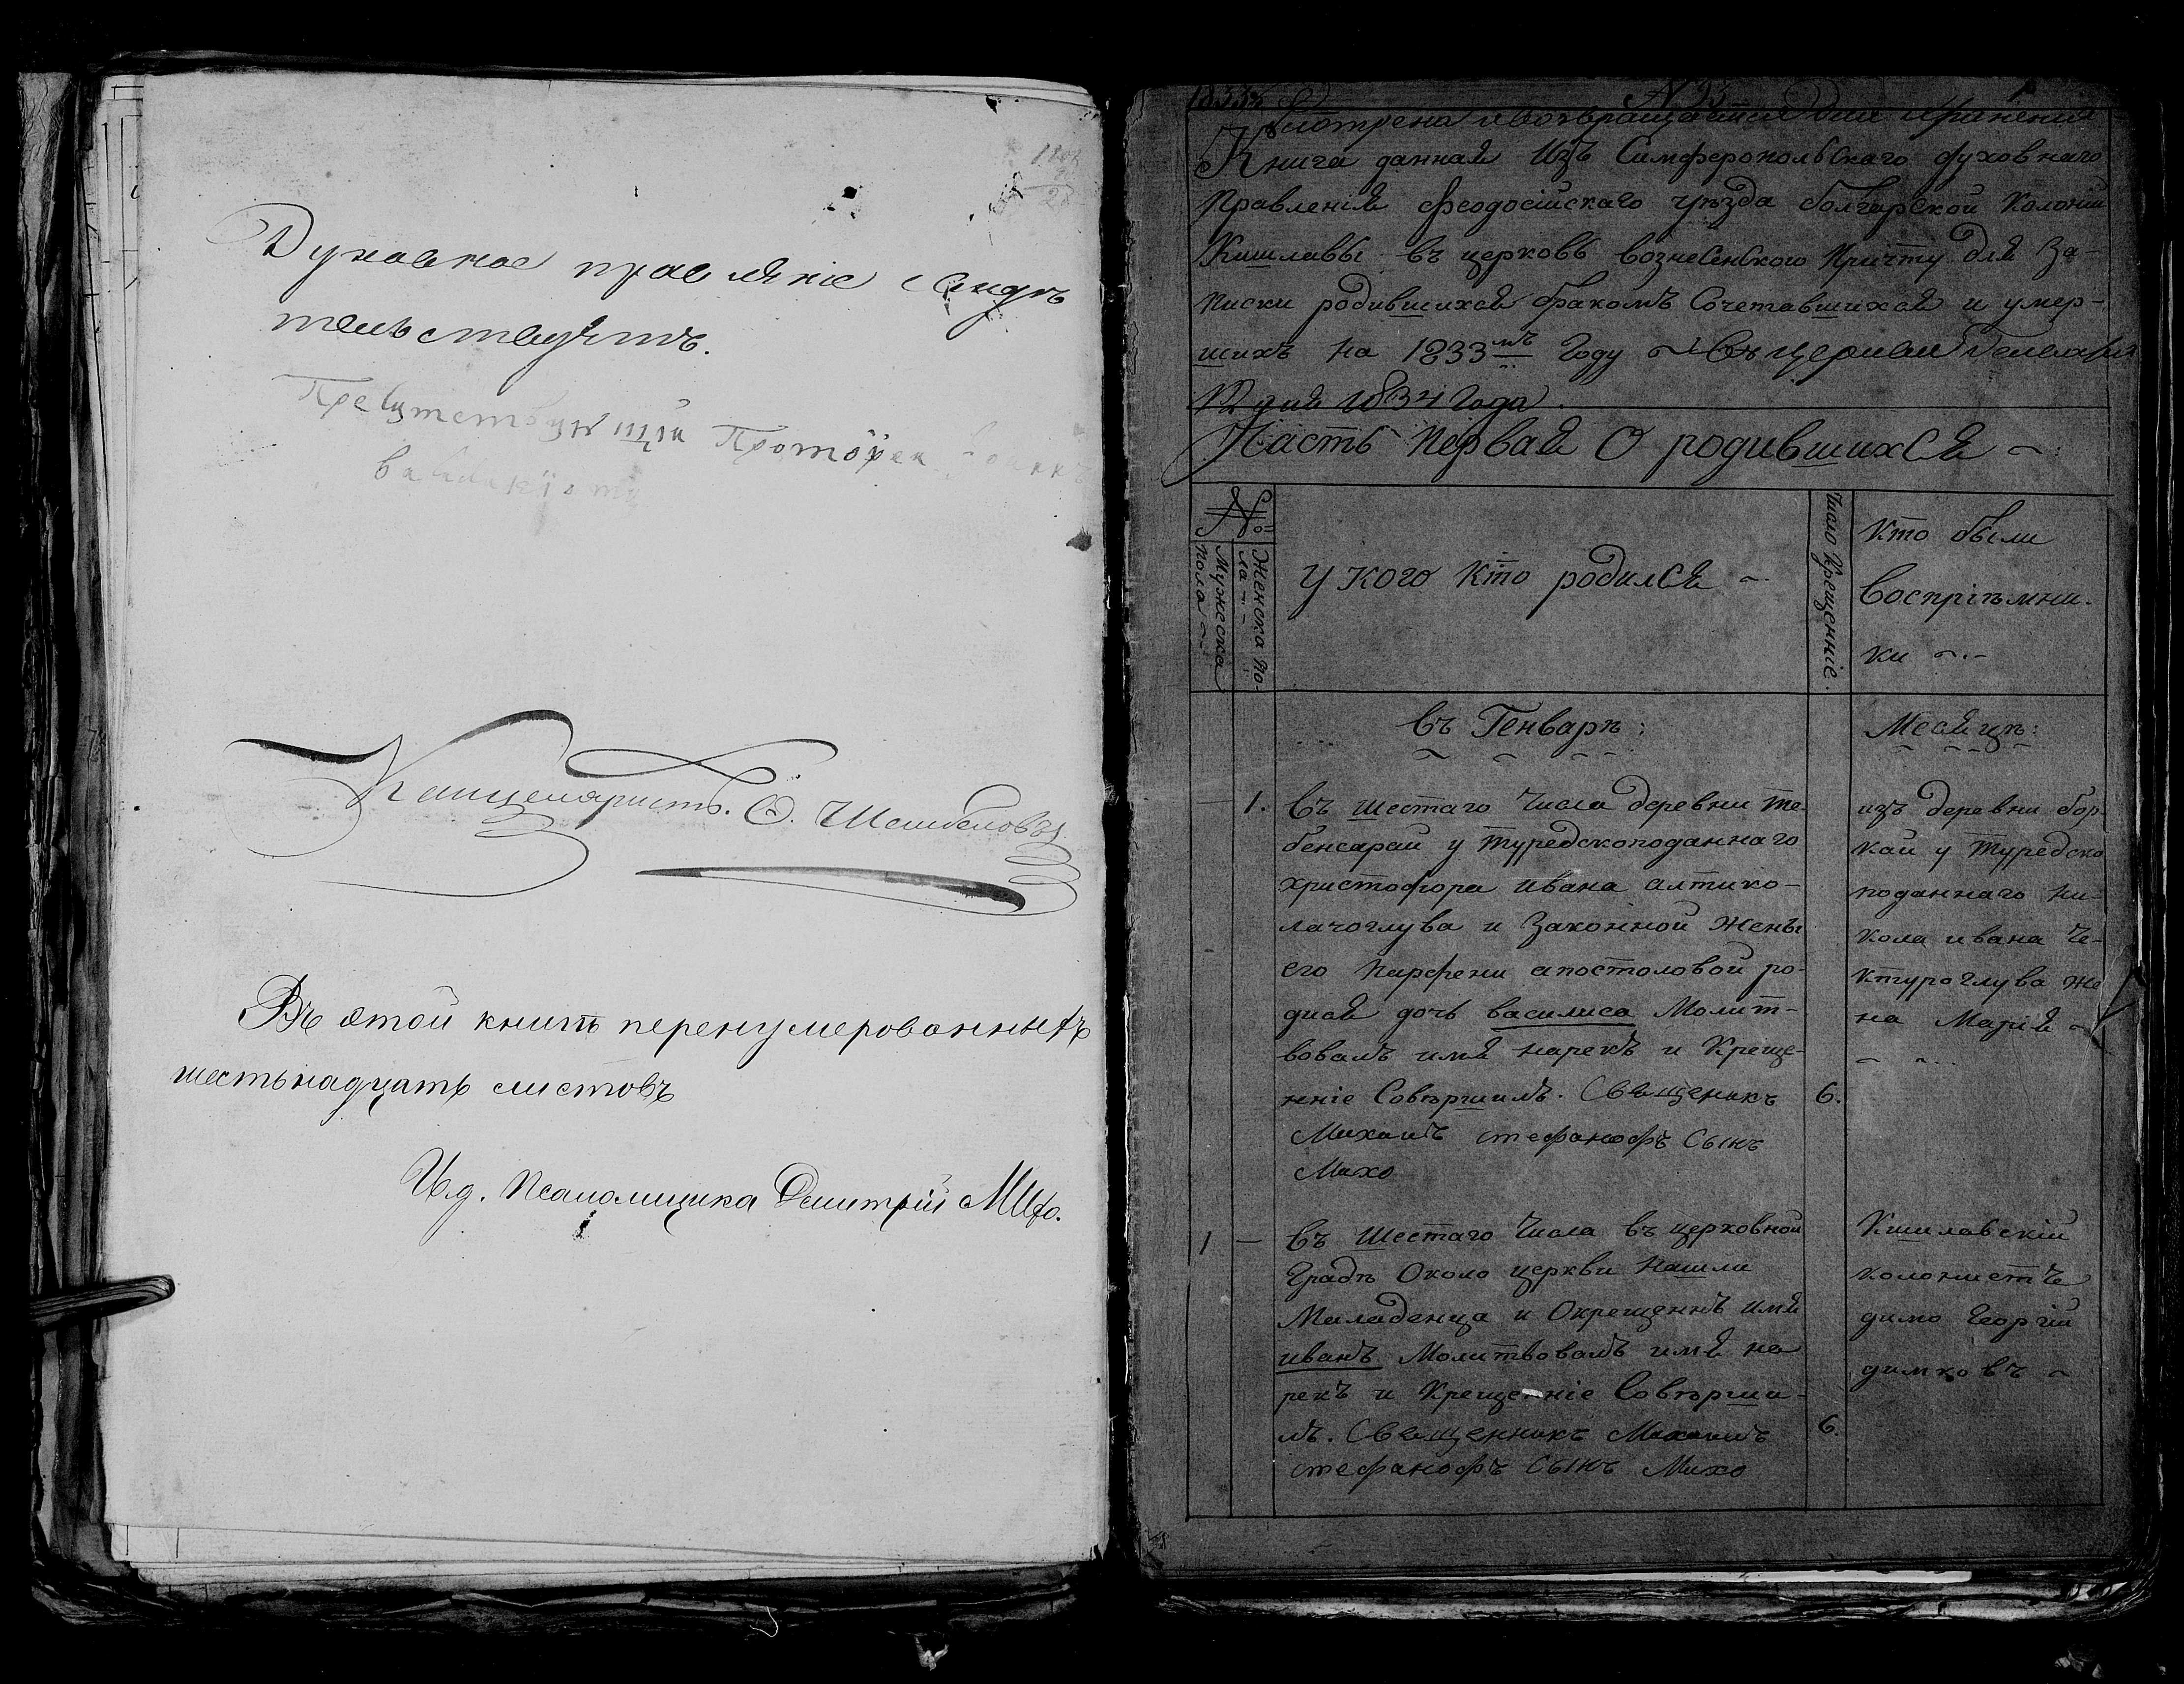 Духовное правленіе свидѣ
тельствуетъ.
Канцеляристъ. Ѳ.
Въ этой книгѣ перенумерованныхъ
шестьнадцать листовъ
И.д. Псаломщика Димитрій Михо.
1833
N 93
1
смотрена и возвращается для храненія
Книга данная Изъ Симферопольскаго духовнаго
Правленія феодосійскаго уѣзда болгарской Колоніи
Кишлавы въ церковь вознесенскою Причту для За-
писки родившихся бракомъ Сочетавшихся и умер-
шихъ На 1833мъ Году Въ церкви
1834 Года
Часть Первая О родившихся
№
Мужеска
пола
Женска по-
ла
У кого кто родился
Число Крещеніе.
Кто были
воспріѣмни-
ки
въ Генварѣ:
Месяцѣ:
1. въ шестаго числа деревни те-
бенсарай у Турецкоподаннаго
христофора ивана алтико-
лачоглува и Законной Жены
его Парфени апостоловой ро-
дися дочь василиса Молит-
вовалъ имя нарекъ и Креще-
нніе Совѣршилъ. Священикъ
Михаилъ стефанофъ Сынъ
Михо
6.
изъ деревни бор-
кай у Турецко
поданнаго Ни-
кола ивана Че-
ктуроглува Же
на Марія
1 — въ Шестаго Числа въ церковной
Градѣ Около церкви Нашли
Маладенца и Окрещеннъ имя
иванъ Молитвовалъ имя на
рекъ и Крещенніе Совѣрши-
лъ. Священникъ Михаилъ
стефанофъ Сынъ Михо
6.
Кишлавскій
колонистъ
димо Георгій
димковъ